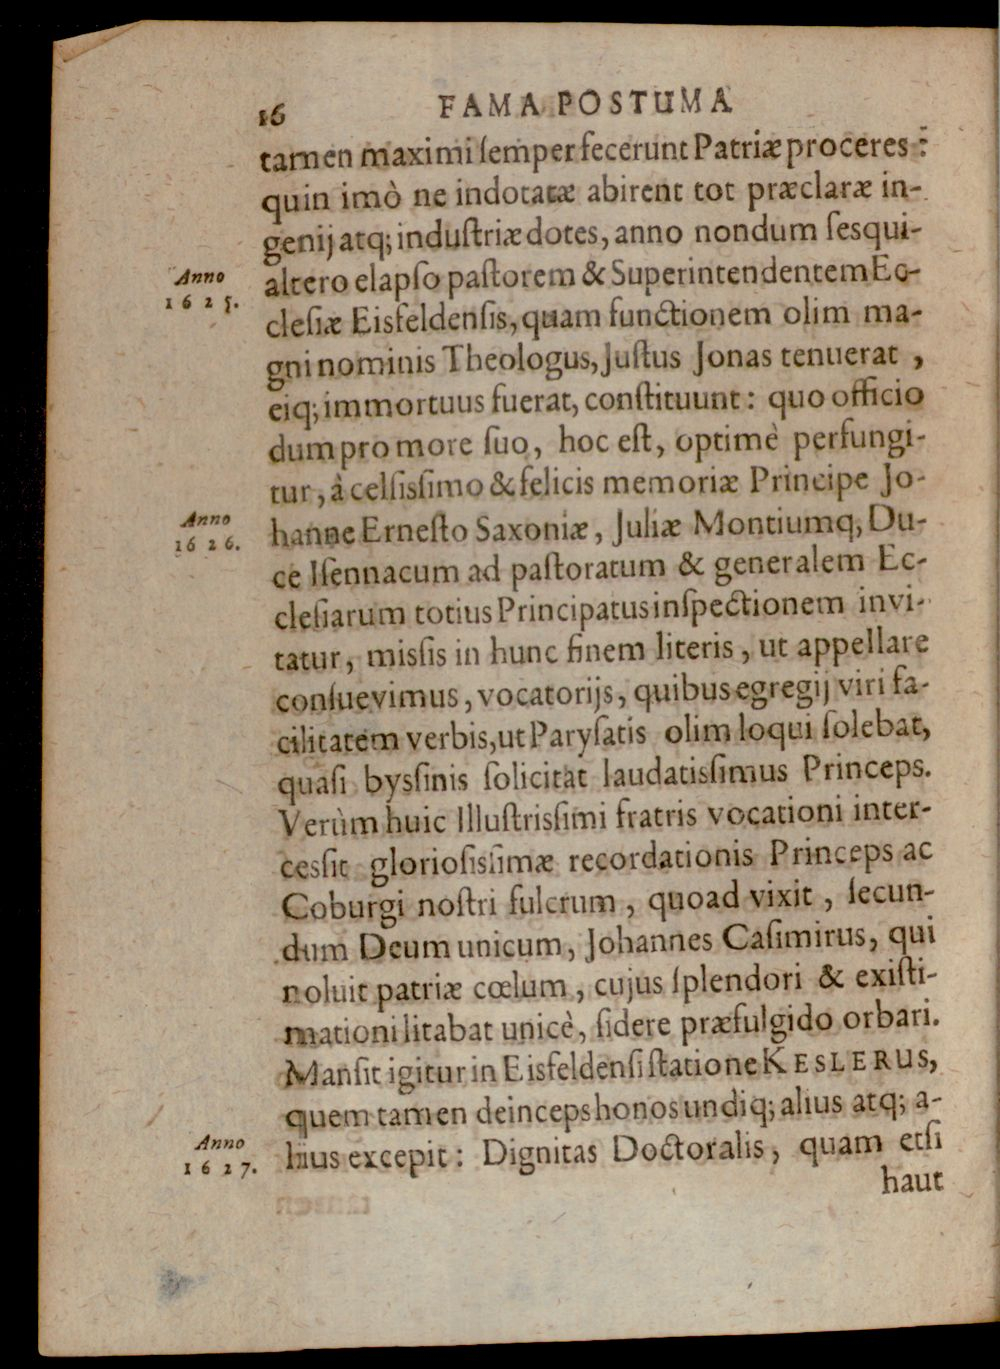 16 FAMA POSTUMA
tamen maximi ſemper fecerunt Patriæ proceres:
quin imò ne indotatæ abirent tot præclaræ in-
genij atq; induſtriæ dotes, anno nondum ſesqui-
Anno
1625.
altero elapſo paſtorem & Superintendentem Ec-
cleſiæ Eisfeldenſis, quam functionem olim ma-
gni nominis Theologus, Juſtus Jonas tenuerat,
eiq; immortuus fuerat, conſtituunt: quo officio
dum pro more ſuo, hoc eſt, optimè perfungi-
tur, à celſisſimo & felicis memoriæ Principe Jo-
Anno
1626.
hanne Erneſto Saxoniæ, Juliæ Montiumq; Du-
ce Iſennacum ad paſtoratum & generalem Ec-
cleſiarum totius Principatus inſpectionem invi-
tatur, misſis in hunc finem literis, ut appellare
conſuevimus, vocatorijs, quibus egregij viri fa-
cilitatem verbis, ut Paryſatis olim loqui ſolebat,
quaſi bysſinis ſolicitat laudatisſimus Princeps.
Verùm huic Illuſtrisſimi fratris vocationi inter-
cesſit glorioſisſimæ recordationis Princeps ac
Coburgi noſtri fulcrum, quoad vixit, ſecun-
dum Deum unicum, Johannes Caſimirus, qui
noluit patriæ cœlum, cujus ſplendori & exiſti-
mationi litabat unicè, ſidere præfulgido orbari.
Manſit igitur in Eisfeldenſi ſtatione KESLERUS,
quem tamen deinceps honos undiq; alius atq; a-
Anno
1627.
lius excepit: Dignitas Doctoralis, quam etſi
haut